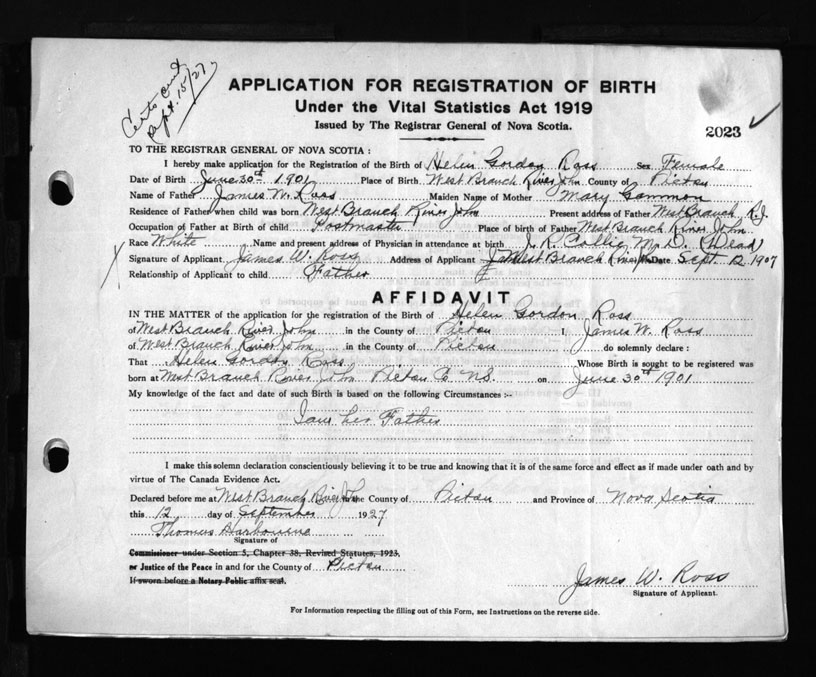 Certs cent
Sept. 15/27
APPLICATION FOR REGISTRATION OF BIRTH
Under the Vital Statistics Act 1919
Issued by The Registrar General of Nova Scotia.
2023
TO THE REGISTRAR GENERAL OF NOVA SCOTIA :
I hereby make application for the Registration of the Birth of Helen Gordon Ross Sex Female
Date of Birth June 30th 1901 Place of Birth West Branch River John County of Pictou
Name of Father James W. Ross Maiden Name of Mother Mary Gammon
Residence of Father when child was born West Branch River John Present address of Father West Branch R.J.
Occupation of Father at Birth of child Postmaster Place of birth of Father West Branch River John
Race White Name and present address of Physician in attendance at birth J. R. Collie M.D. (Dead)
Signature of Applicant James W. Ross Address of Applicant West Branch River John Date Sept. 12 1907
Relationship of Applicant to child Father
AFFIDAVIT
IN THE MATTER of the application for the registration of the Birth of Helen Gordon Ross
of West Branch River John in the County of Pictou I, James W. Ross
of West Branch River John in the County of Pictou do solemnly declare :
That Helen Gordon Ross Whose Birth is sought to be registered was
born at West Branch River John Pictou Co N.S. on June 30th 1901
My knowledge of the fact and date of such Birth is based on the following Circumstances :-
I am her Father
I make this solemn declaration conscientiously believing it to be true and knowing that it is of the same force and effect as if made under oath and by
virtue of The Canada Evidence Act.
Declared before me at West Branch River Jn in the County of Pictou and Province of Nova Scotia
this 12 day of September 1927
Thomas Harbourne
Signature of
Commissioner under Section 5, Chapter 38, Revised Statutes, 1923,
or Justice of the Peace in and for the County of Pictou
If sworn before a Notary Public affix seal.
James W. Ross
Signature of Applicant.
For Information respecting the filling out of this Form, see Instructions on the reverse side.